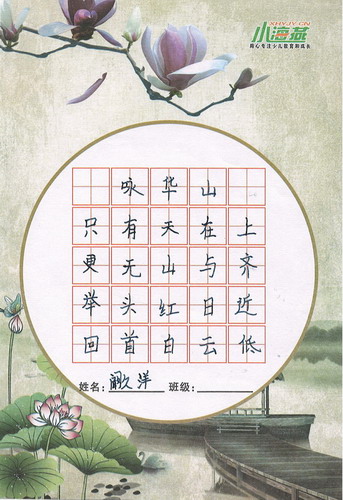 XHYJY.CN
小海燕
用心专注少儿教育和成长
咏华山
只有天在上
更无山与齐
举头红日近
回首白云低
姓名：洋 班级：